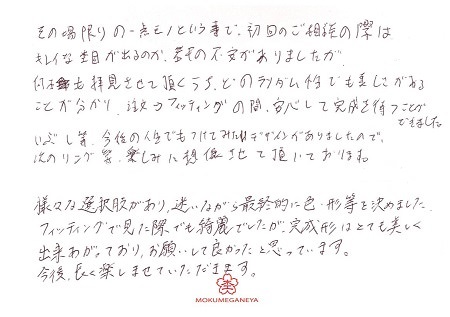 その場限りの一点モノという事で、初回のご相談の際は
キレイな杢目が出るのか、若干の不安がありましたが、
何本も拝見させて頂くうち、どのランダム性でも美しさがある
ことが分かり、注文、フィッティングの間、安心して完成を待つことが
できました
いぶし等、今後の人生でもつけてみたいデザインがありましたので、
次のリング等、楽しみに想像させて頂いております。
様々な選択肢があり、迷いながら最終的に色・形等を決めました。
フィッティングで見た際でも綺麗でしたが、完成形はとても美しく
出来あがっており、お願いして良かったと思っています。
今後、長く楽しませていただきます。
MOKUMEGANEYA